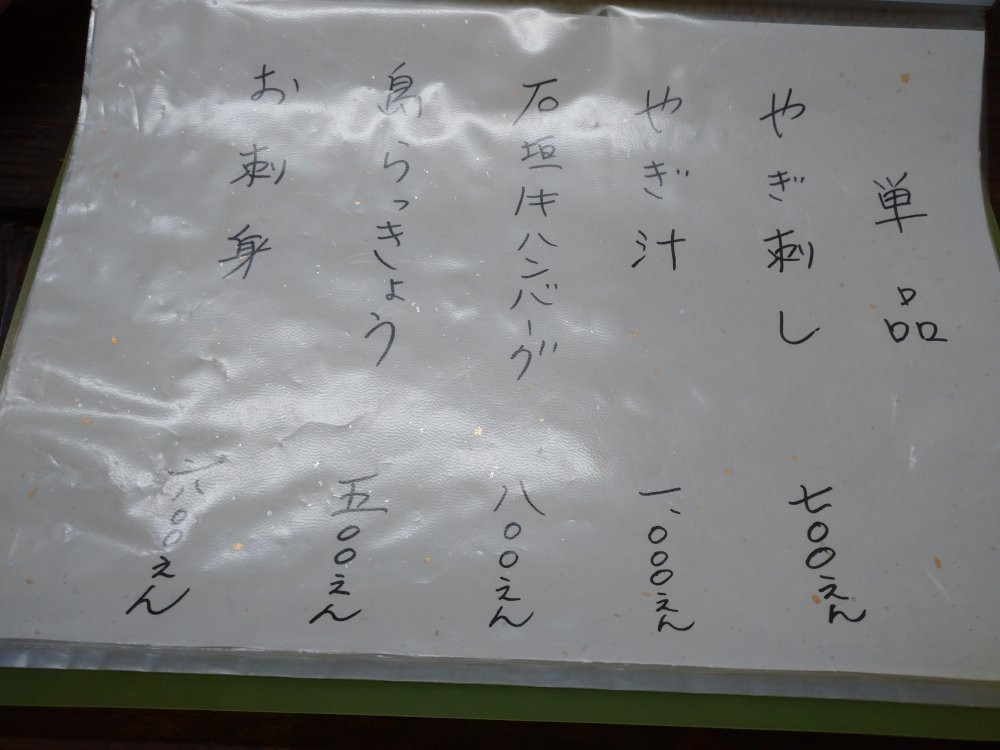 単品
やぎ刺し 七〇〇えん
やぎ汁 一、〇〇〇えん
石垣牛ハンバーグ 八〇〇えん
島らっきょう 五〇〇えん
お刺身 六〇〇えん